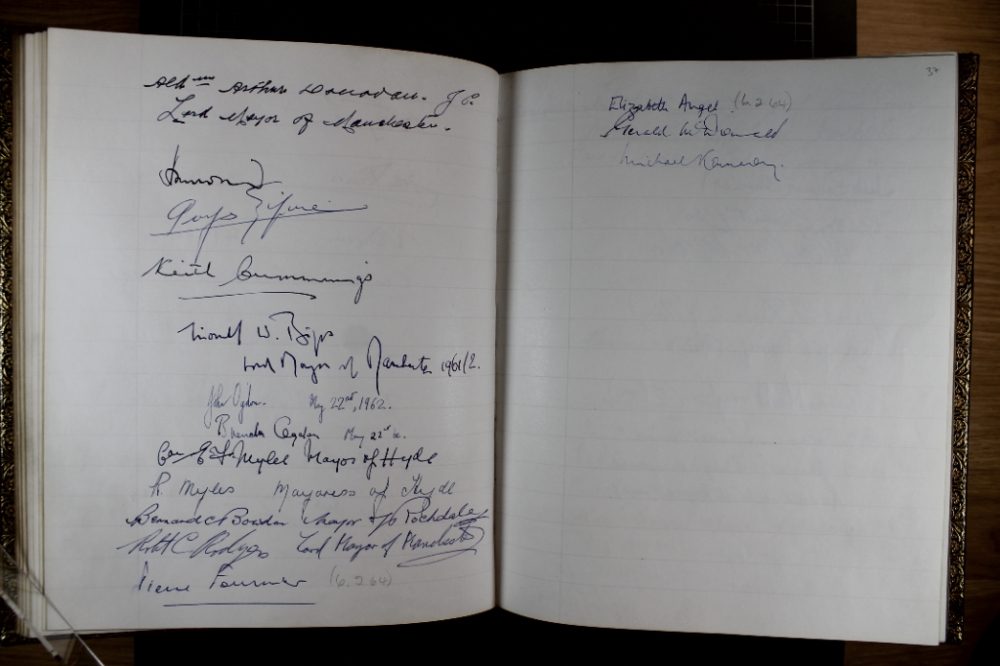 Aldmn Arthur Donovan. J.P.
Lord Mayor of Manchester.
Keith Cummings
Lionel W. Biggs
Lord Mayor of Manchester 1961/2.
John Ogdon. May 22nd, 1962.
Brenda Ogdon May 22nd
E Myles Mayor of Hyde
R. Myles Mayoress of Hyde
Bernard C Bowden Mayor of Rochdale
Robt C Rodgers Lord Mayor of Manchester
Pierre Fournier (6.2.64)
37
Elizabeth Angel (6.2.64)
Gerald McDonald
Michael Kennedy.